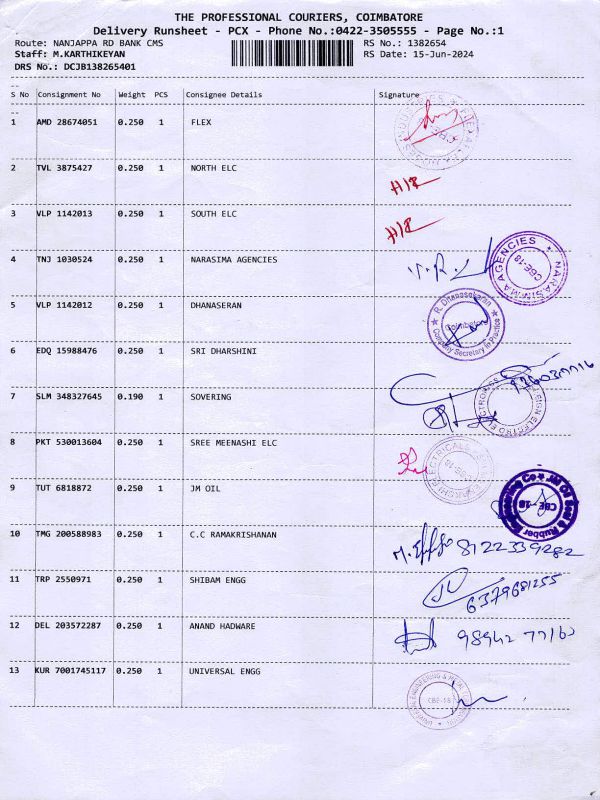 THE PROFESSIONAL COURIERS, COIMBATORE
Delivery Runsheet - PCX - Phone No.:0422-3505555 - Page No.:1
Route: NANJAPPA RD BANK CMS RS No.: 1382654
Staff: M.KARTHIKEYAN RS Date: 15-Jun-2024
DRS No.: DCJB138265401
S No Consignment No Weight PCS Consignee Details Signature
1 AMD 28674051 0.250 1 FLEX
2 TVL 3875427 0.250 1 NORTH ELC
3 VLP 1142013 0.250 1 SOUTH ELC
4 TNJ 1030524 0.250 1 NARASIMA AGENCIES
NARASIMMA AGENCIES CBE-18
5 VLP 1142012 0.250 1 DHANASERAN
R. Dhanasekaran Coimbatore Company Secretary in Practice
6 EDQ 15988476 0.250 1 SRI DHARSHINI
7 SLM 348327645 0.190 1 SOVERING
8 PKT 530013604 0.250 1 SREE MEENASHI ELC
9 TUT 6818872 0.250 1 JM OIL
JM Oil Seal & Rubber Engineering Co CBE-18
10 TMG 200588983 0.250 1 C.C RAMAKRISHANAN 8122339282
11 TRP 2550971 0.250 1 SHIBAM ENGG 6379681255
12 DEL 203572287 0.250 1 ANAND HADWARE
13 KUR 7001745117 0.250 1 UNIVERSAL ENGG
CBE-18